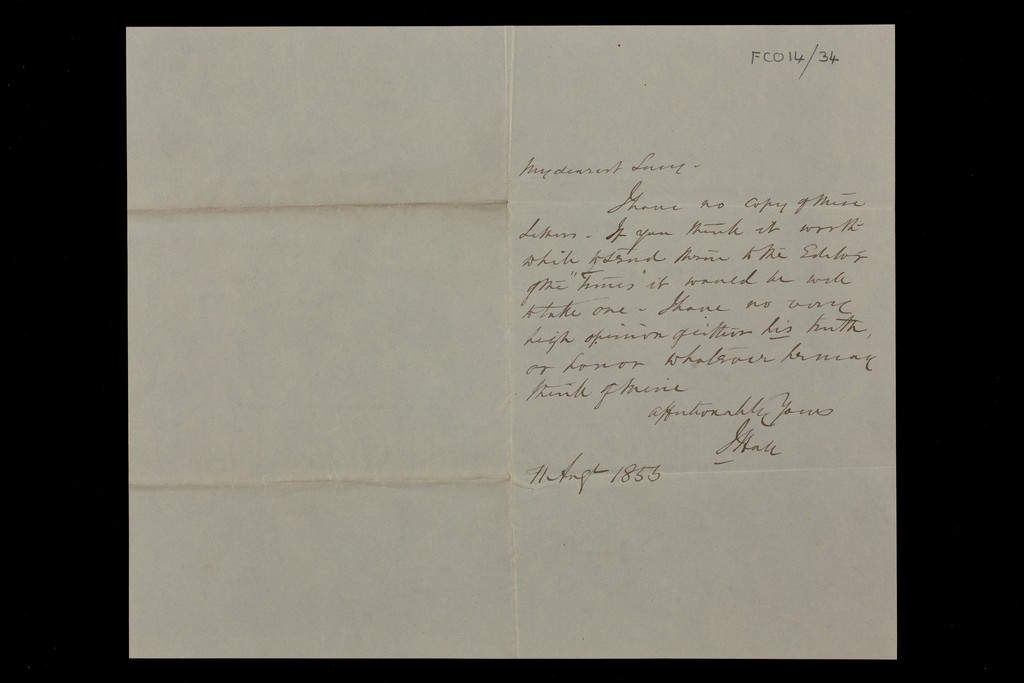 FCO14/34
My dearest Lucy -
I have no copy of these
Letters - If you think it worth
while to send them to the Editor
of the "Times" it would be well
to take one - I have no very
high opinion of either his truth,
or honor whatever he may
think of mine
affectionately Yours
J Hall
11 Augt 1855